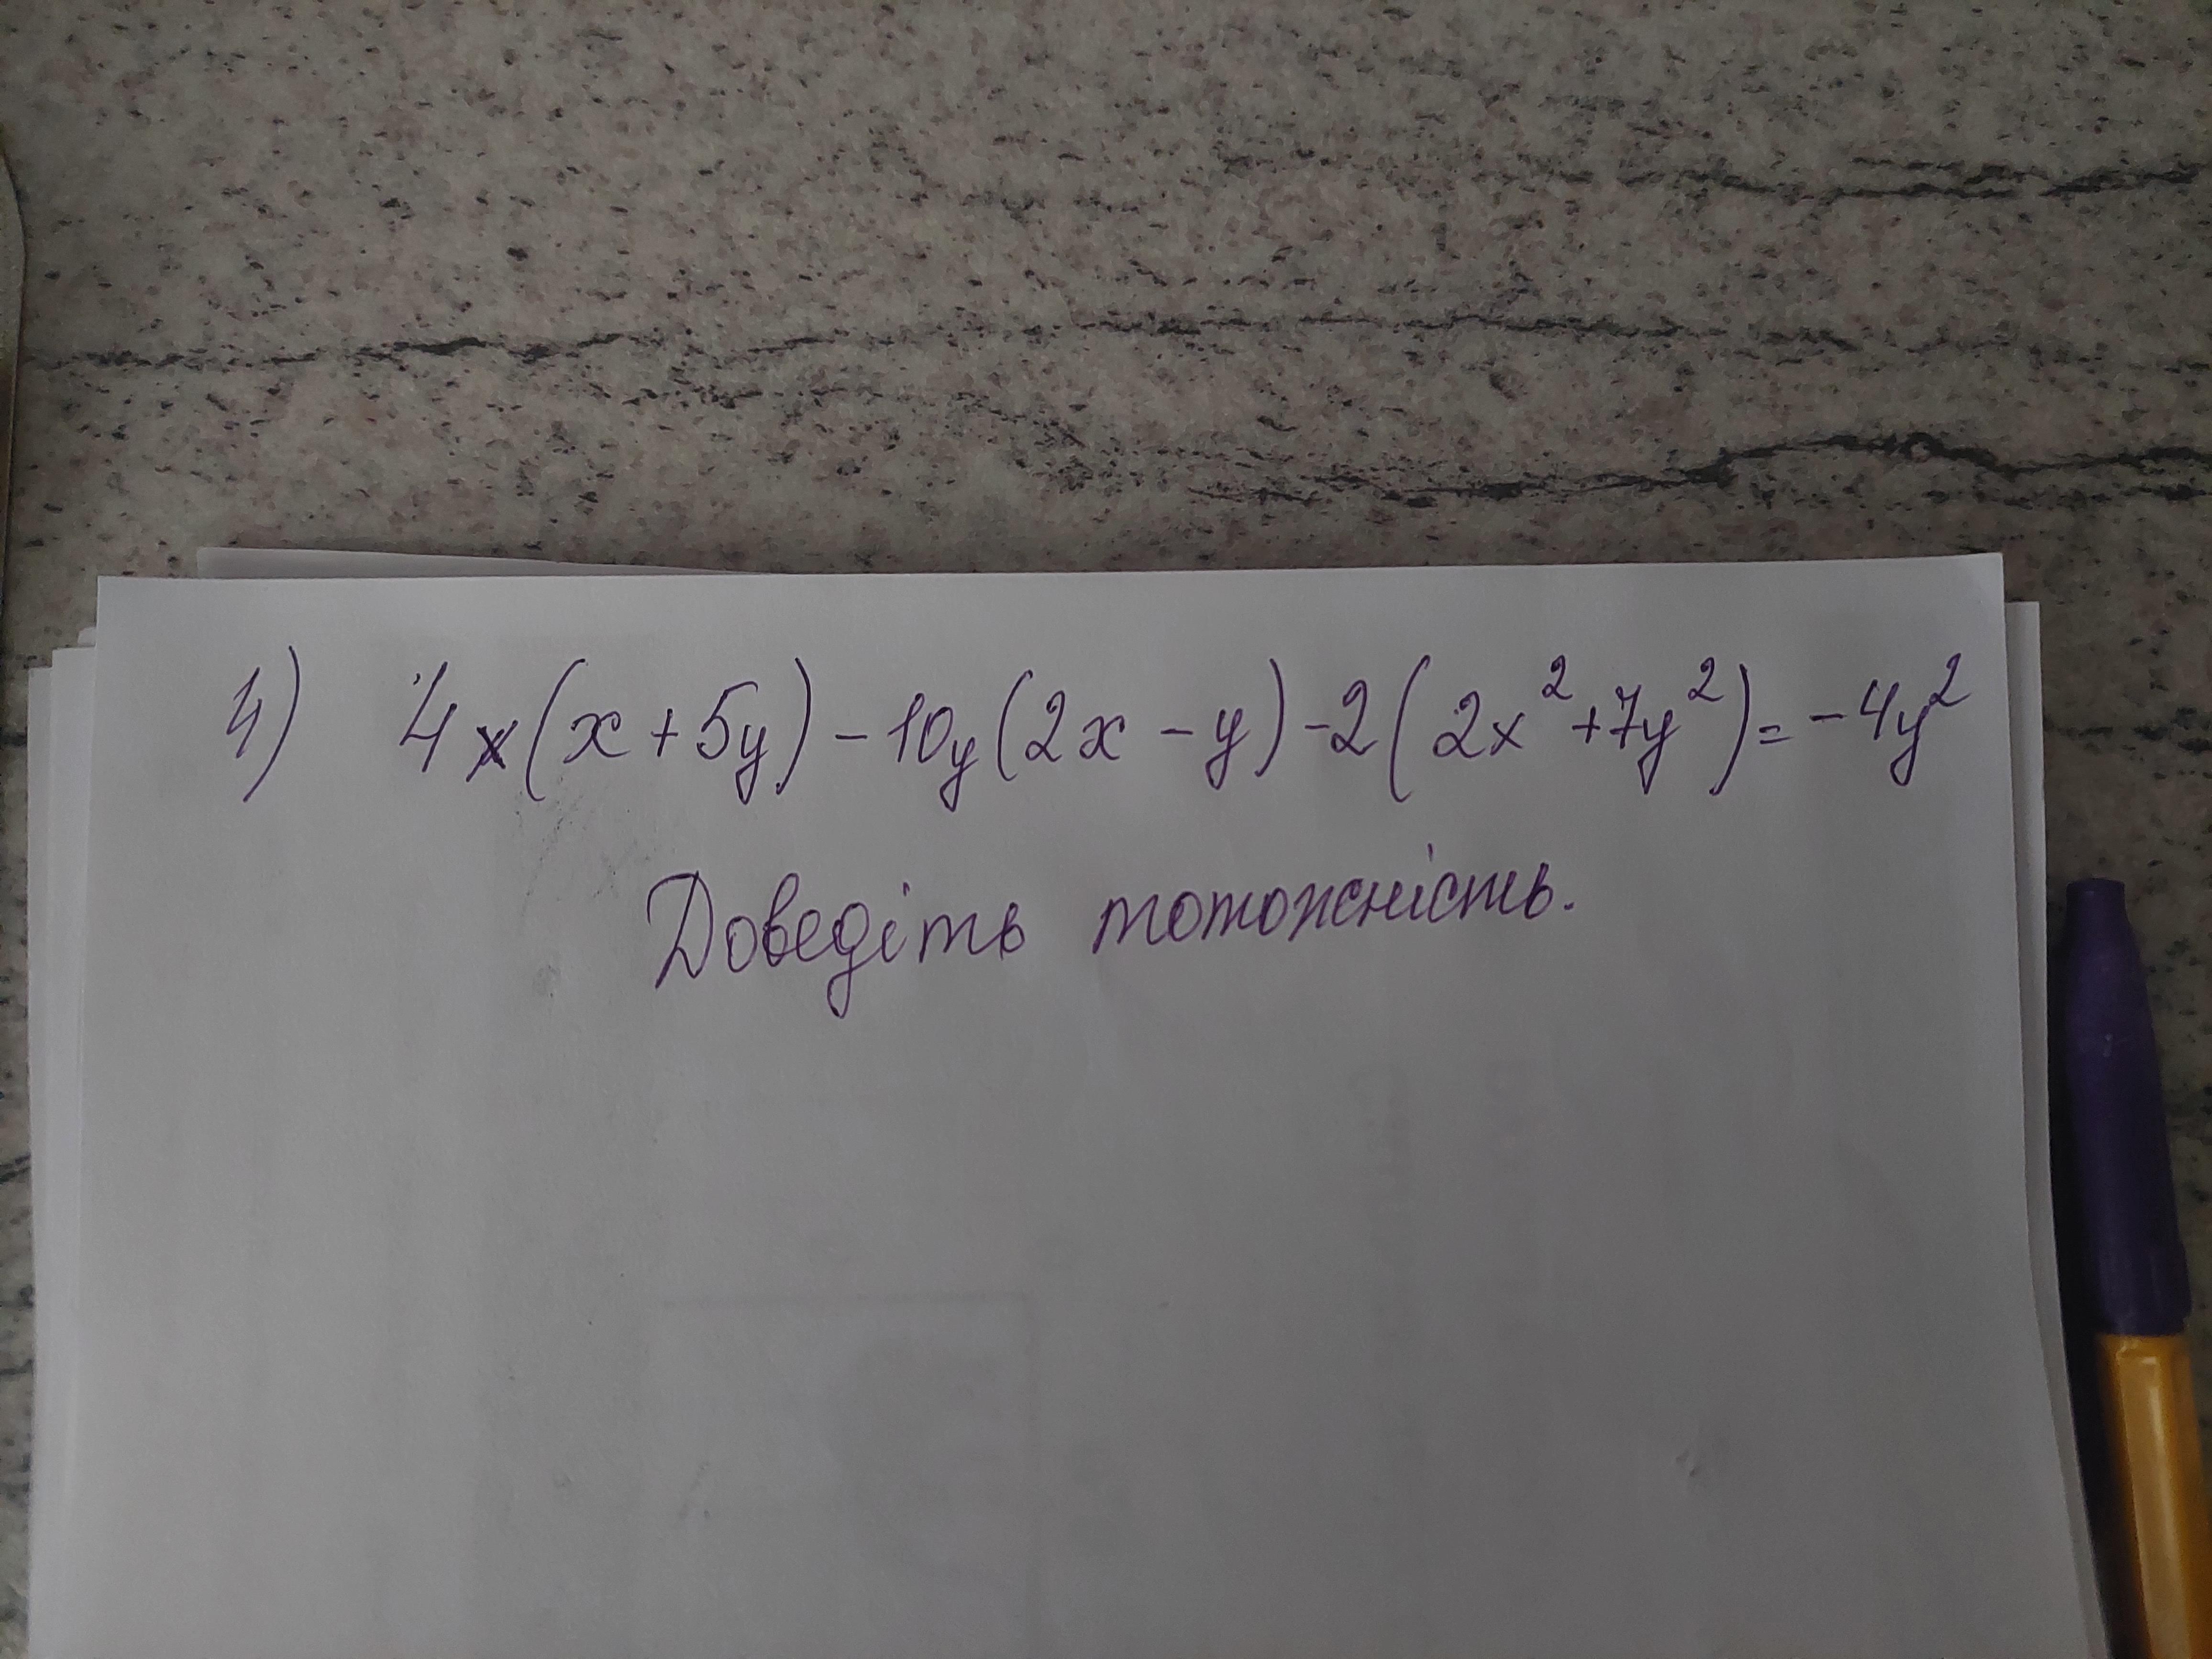 4) 4x(x+5y)-10y(2x-y)-2(2x²+7y²)=-4y²
Доведіть тотожність.